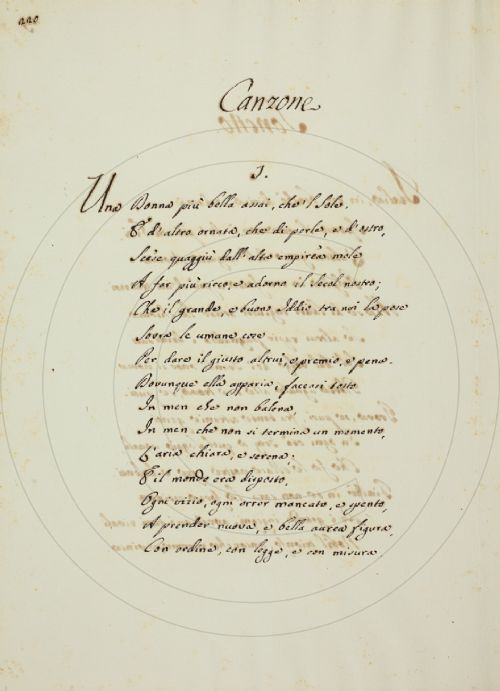 220
Canzone
I.
Una Donna più bella assai, che 'l Sole,
E d'altro ornata, che di perle, e d'ostro,
Scese quaggiù dall'alta empirea mole
A far più ricco, e adorno il Secol nostro;
Che il grande, e buono Iddio tra noi la pose
Sovra le umane cose
Per dare il giusto altrui, e premio, e pena.
Dovunque ella apparia, faceasi tosto
In men che non balena,
In men che non si termina un momento,
L'aria chiara, e serena;
E il mondo era disposto,
Ogni vizio, ogni error mancato, e spento,
A prender nuova, e bella aurea figura,
Con ordine, con legge, e con misura.